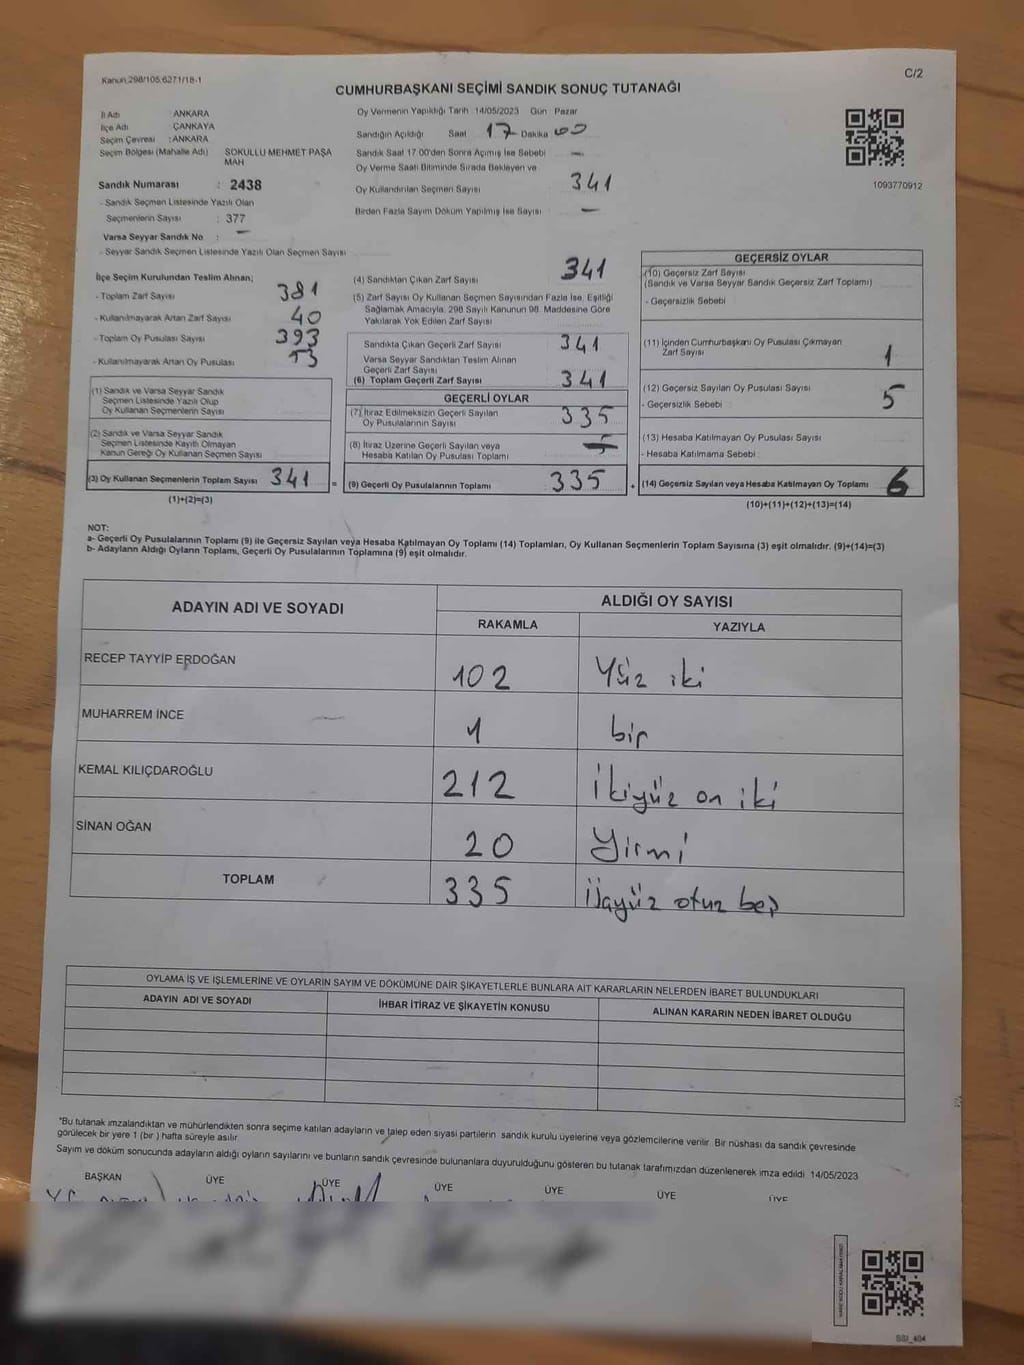 Kanun 298/105,6271/18-1
C/2
CUMHURBAŞKANI SEÇİMİ SANDIK SONUÇ TUTANAĞI
İl Adı : ANKARA
İlçe Adı : ÇANKAYA
Seçim Çevresi : ANKARA
Seçim Bölgesi (Mahalle Adı) SOKULLU MEHMET PAŞA
MAH
Sandık Numarası : 2438
- Sandık Seçmen Listesinde Yazılı Olan
Seçmenlerin Sayısı : 377
Varsa Seyyar Sandık No : —
- Seyyar Sandık Seçmen Listesinde Yazılı Olan Seçmen Sayısı
Oy Vermenin Yapıldığı Tarih 14/05/2023 Gün Pazar
Sandığın Açıldığı Saat 17 Dakika 00
Sandık Saat 17.00'den Sonra Açılmış İse Sebebi —
Oy Verme Saati Bitiminde Sırada Bekleyen ve
Oy Kullandırılan Seçmen Sayısı 341
Birden Fazla Sayım Döküm Yapılmış İse Sayısı —
1093770912
İlçe Seçim Kurulundan Teslim Alınan;
- Toplam Zarf Sayısı 381
- Kullanılmayarak Artan Zarf Sayısı 40
- Toplam Oy Pusulası Sayısı 393
- Kullanılmayarak Artan Oy Pusulası
(1) Sandık ve Varsa Seyyar Sandık
Seçmen Listesinde Yazılı Olup
Oy Kullanan Seçmenlerin Sayısı
(2) Sandık ve Varsa Seyyar Sandık
Seçmen Listesinde Kayıtlı Olmayan
Kanun Gereği Oy Kullanan Seçmen Sayısı
(3) Oy Kullanan Seçmenlerin Toplam Sayısı 341 =
(1)+(2)=(3)
(4) Sandıktan Çıkan Zarf Sayısı 341
(5) Zarf Sayısı Oy Kullanan Seçmen Sayısından Fazla İse, Eşitliği
Sağlamak Amacıyla, 298 Sayılı Kanunun 98. Maddesine Göre
Yakılarak Yok Edilen Zarf Sayısı
Sandıkta Çıkan Geçerli Zarf Sayısı 341
Varsa Seyyar Sandıktan Teslim Alınan
Geçerli Zarf Sayısı
(6) Toplam Geçerli Zarf Sayısı 341
GEÇERLİ OYLAR
(7) İtiraz Edilmeksizin Geçerli Sayılan
Oy Pusulalarının Sayısı 335
(8) İtiraz Üzerine Geçerli Sayılan veya
Hesaba Katılan Oy Pusulası Toplamı
(9) Geçerli Oy Pusulalarının Toplamı 335 +
GEÇERSİZ OYLAR
(10) Geçersiz Zarf Sayısı
(Sandık ve Varsa Seyyar Sandık Geçersiz Zarf Toplamı)
- Geçersizlik Sebebi
(11) İçinden Cumhurbaşkanı Oy Pusulası Çıkmayan
Zarf Sayısı 1
(12) Geçersiz Sayılan Oy Pusulası Sayısı 5
- Geçersizlik Sebebi :
(13) Hesaba Katılmayan Oy Pusulası Sayısı
- Hesaba Katılmama Sebebi :
(14) Geçersiz Sayılan veya Hesaba Katılmayan Oy Toplamı 6
(10)+(11)+(12)+(13)=(14)
NOT:
a- Geçerli Oy Pusulalarının Toplamı (9) ile Geçersiz Sayılan veya Hesaba Katılmayan Oy Toplamı (14) Toplamları, Oy Kullanan Seçmenlerin Toplam Sayısına (3) eşit olmalıdır. (9)+(14)=(3)
b- Adayların Aldığı Oyların Toplamı, Geçerli Oy Pusulalarının Toplamına (9) eşit olmalıdır.
ADAYIN ADI VE SOYADI ALDIĞI OY SAYISI
RAKAMLA YAZIYLA
RECEP TAYYİP ERDOĞAN 102 Yüz iki
MUHARREM İNCE 1 bir
KEMAL KILIÇDAROĞLU 212 İkiyüz on iki
SİNAN OĞAN 20 Yirmi
TOPLAM 335 üçyüz otuz beş
OYLAMA İŞ VE İŞLEMLERİNE VE OYLARIN SAYIM VE DÖKÜMÜNE DAİR ŞİKAYETLERLE BUNLARA AİT KARARLARIN NELERDEN İBARET BULUNDUKLARI
ADAYIN ADI VE SOYADI İHBAR İTİRAZ VE ŞİKAYETİN KONUSU ALINAN KARARIN NEDEN İBARET OLDUĞU
*Bu tutanak imzalandıktan ve mühürlendikten sonra seçime katılan adayların ve talep eden siyasi partilerin sandık kurulu üyelerine veya gözlemcilerine verilir. Bir nüshası da sandık çevresinde
görülecek bir yere 1 (bir ) hafta süreyle asılır.
Sayım ve döküm sonucunda adayların aldığı oyların sayılarını ve bunların sandık çevresinde bulunanlara duyurulduğunu gösteren bu tutanak tarafımızdan düzenlenerek imza edildi. 14/05/2023
BAŞKAN ÜYE ÜYE ÜYE ÜYE ÜYE ÜYE
SSI_404